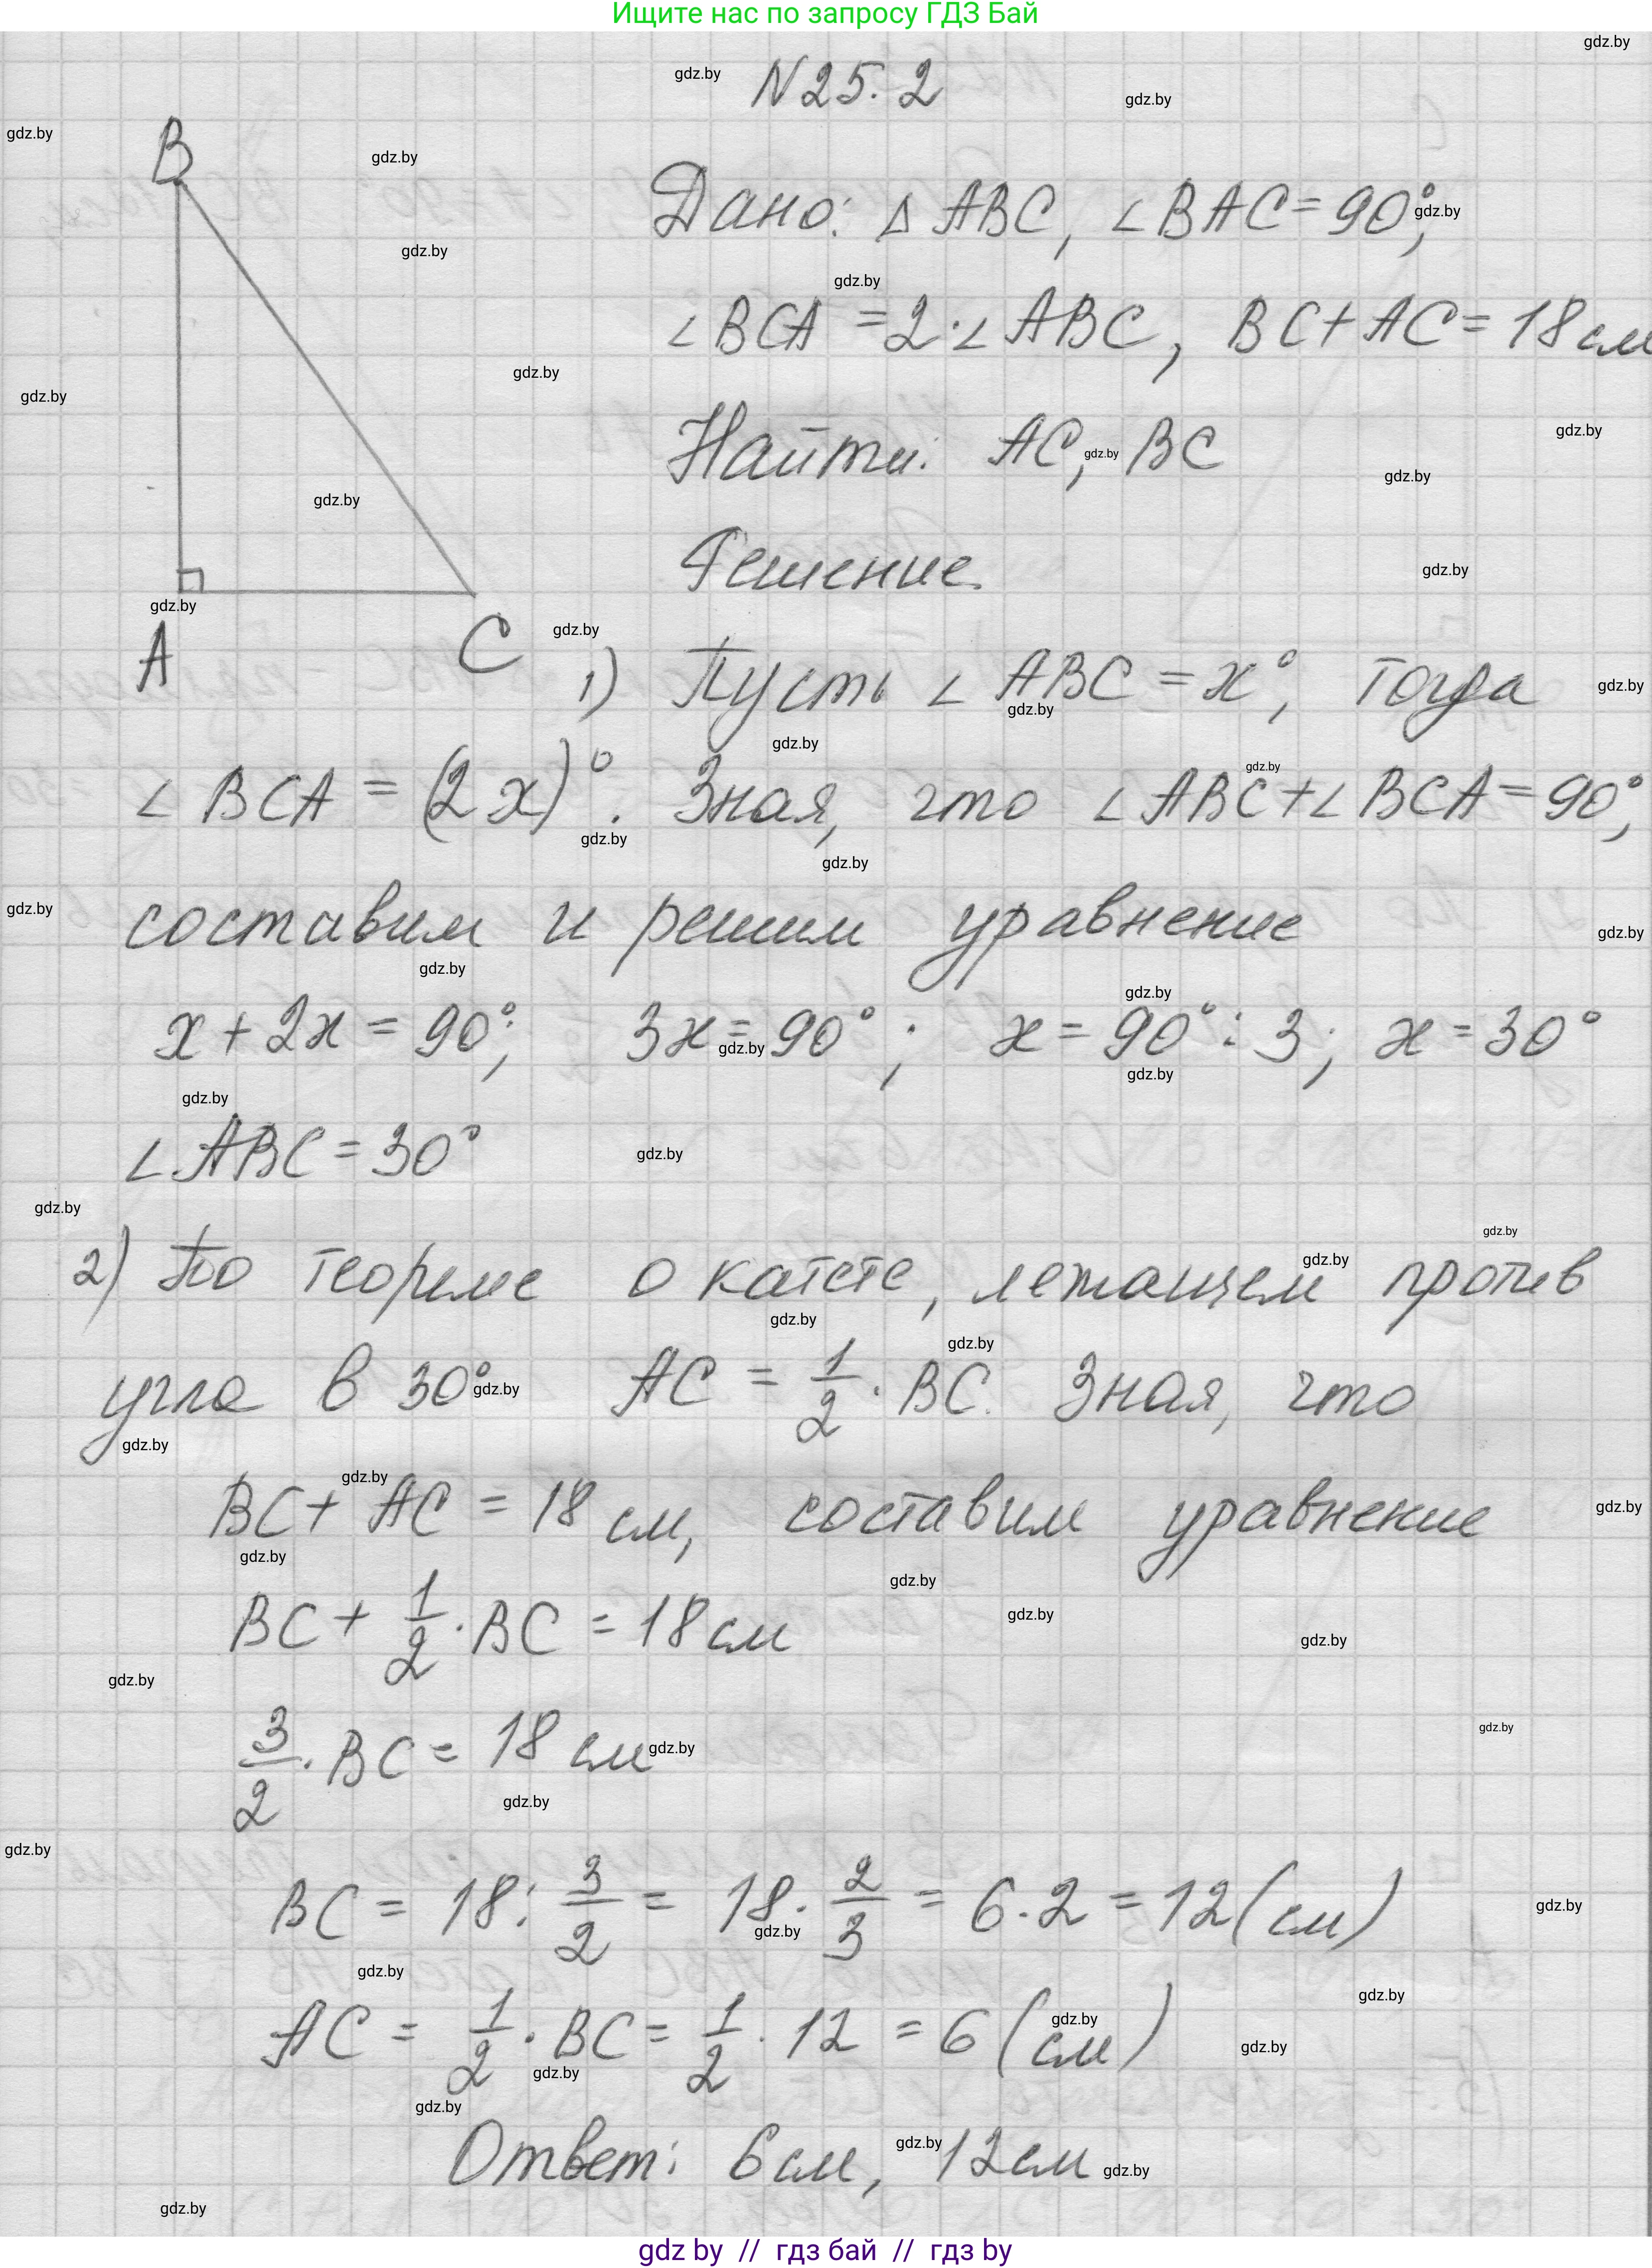 Ищите нас по запросу ГДЗ Бай
N 25.2
B
Дано: Δ ABC, ∠BAC = 90°,
∠BCA = 2·∠ABC, BC + AC = 18 см
Найти: AC, BC
Решение.
A
C
1) Пусть ∠ABC = x°, тогда
∠BCA = (2x)°. Зная, что ∠ABC + ∠BCA = 90°,
составим и решим уравнение
x + 2x = 90°; 3x = 90°; x = 90° : 3; x = 30°
∠ABC = 30°
2) По теореме о катете, лежащем против
угла в 30° AC = 1/2 · BC. Зная, что
BC + AC = 18 см, составим уравнение
BC + 1/2 · BC = 18 см
3/2 · BC = 18 см
BC = 18 : 3/2 = 18 · 2/3 = 6 · 2 = 12 (см)
AC = 1/2 · BC = 1/2 · 12 = 6 (см)
Ответ: 6 см, 12 см
gdz by // гдз бай // гдз by